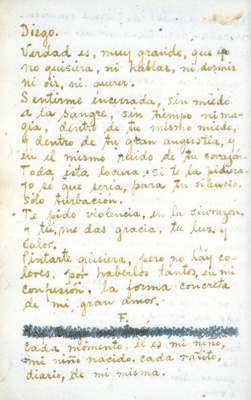 Diego.
Verdad es, muy grande, que yo
no quisiera, ni hablar, ni dormir
ni oir, ni querer.
Sentirme encerrada, sin miedo
a la sangre, sin tiempo ni ma-
gia, dentro de tu mismo miedo,
y dentro de tu gran angustia, y
en el mismo ruido de tu corazón.
Toda esta locura, si te la pidiera,
yo sé que sería, para tu silencio,
solo turbación.
Te pido violencia, en la sinrazon
y tú, me das gracia, tu luz y
calor.
Pintarte quisiera, pero no hay co-
lores, por haberlos tantos, en mi
confusión, la forma concreta
de mi gran amor.
F.
Cada momento, él es mi niño,
mi niño nacido, cada ratito,
diario, de mi misma.